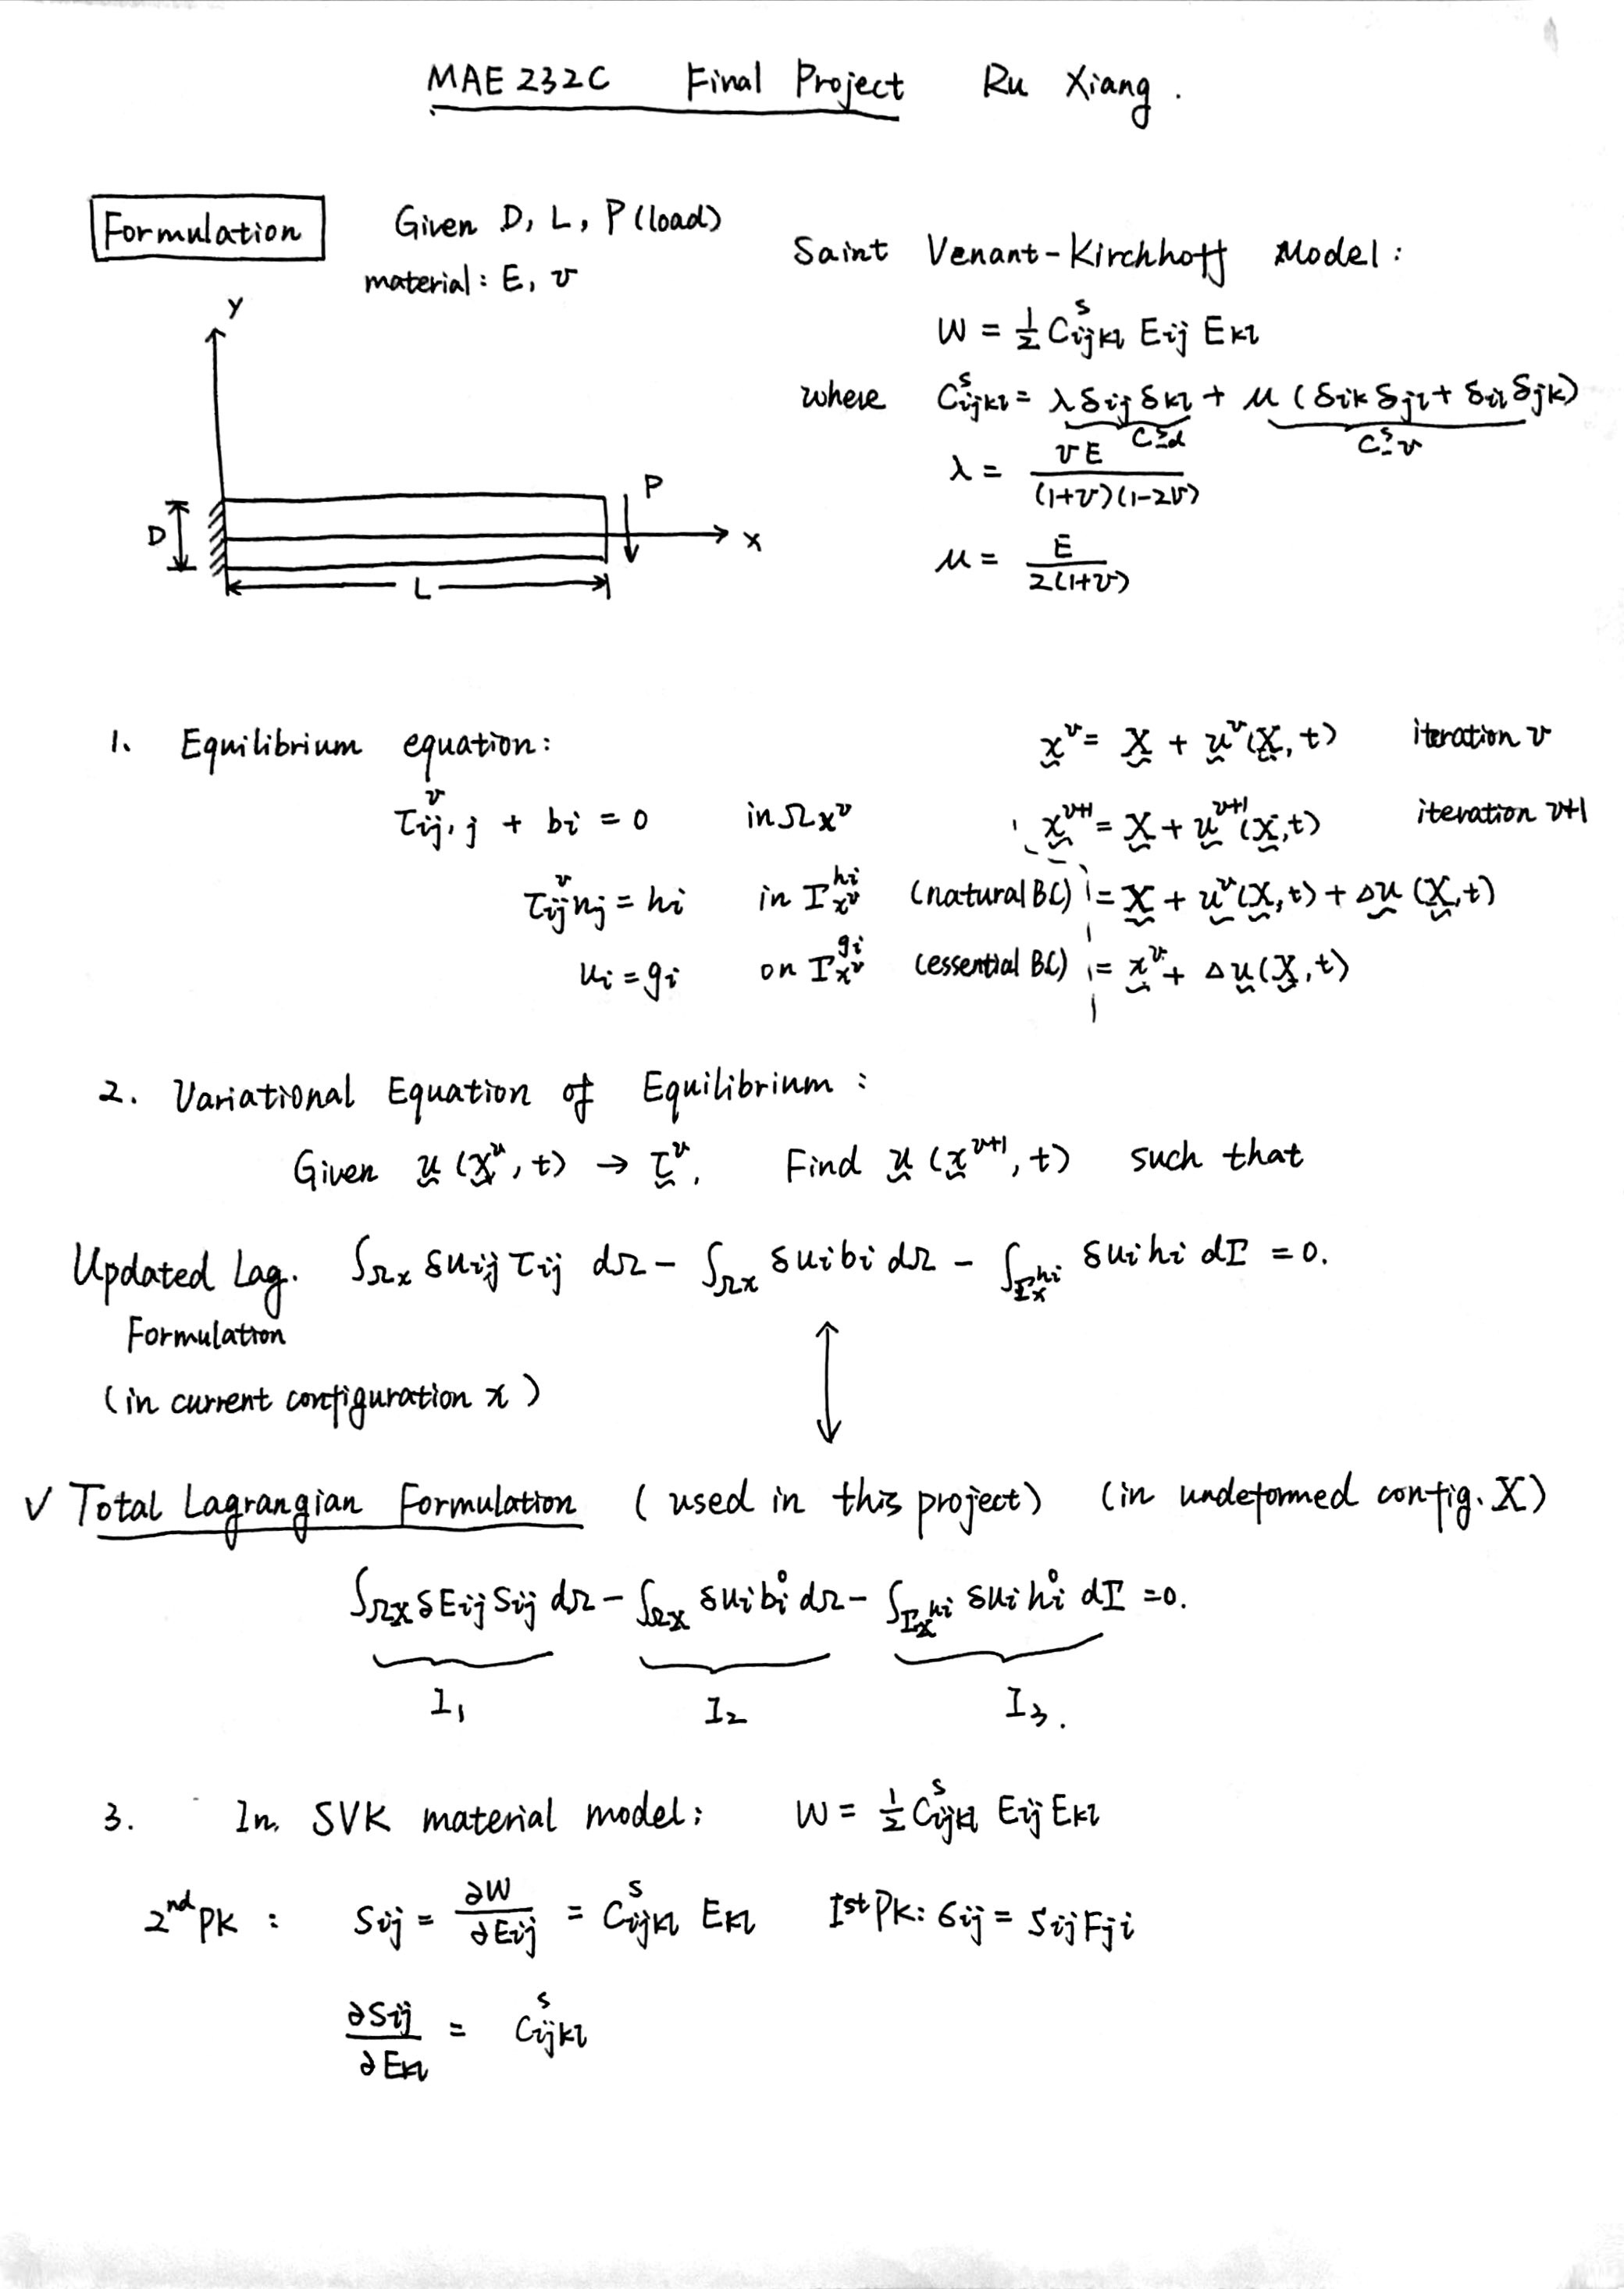 MAE 232C Final Project Ru Xiang.
Formulation
Given D, L, P (load)
material: E, ν
Saint Venant-Kirchhoff Model:
W = 1/2 C^s_ijkl E_ij E_kl
where C^s_ijkl = λ δ_ij δ_kl + μ (δ_ik δ_jl + δ_il δ_jk)
C^s_d C^s_v
λ = νE / (1+ν)(1-2ν)
μ = E / 2(1+ν)
Y
D
P
X
L
1. Equilibrium equation:
τ^ν_ij,j + b_i = 0 in Ω_x^ν
τ^ν_ij n_j = h_i in Γ^hi_x^ν (natural BC)
u_i = g_i on Γ^gi_x^ν (essential BC)
x^ν = X + u^ν(X, t) iteration ν
x^ν+1 = X + u^ν+1(X, t) iteration ν+1
= X + u^ν(X, t) + Δu (X, t)
= x^ν + Δu(X, t)
2. Variational Equation of Equilibrium:
Given u (x^ν, t) → τ^ν. Find u (x^ν+1, t) such that
Updated Lag. ∫_Ωx δu_i,j τ_ij dΩ - ∫_Ωx δu_i b_i dΩ - ∫_Γx^hi δu_i h_i dΓ = 0.
Formulation
(in current configuration x)
√ Total Lagrangian Formulation (used in this project) (in undeformed config. X)
∫_ΩX δE_ij S_ij dΩ - ∫_ΩX δu_i b_i^0 dΩ - ∫_ΓX^hi δu_i h_i^0 dΓ = 0.
I_1 I_2 I_3.
3. In SVK material model: W = 1/2 C^s_ijkl E_ij E_kl
2nd PK: S_ij = ∂W/∂E_ij = C^s_ijkl E_kl 1st PK: σ_ij = S_ij F_ji
∂S_ij/∂E_kl = C^s_ijkl